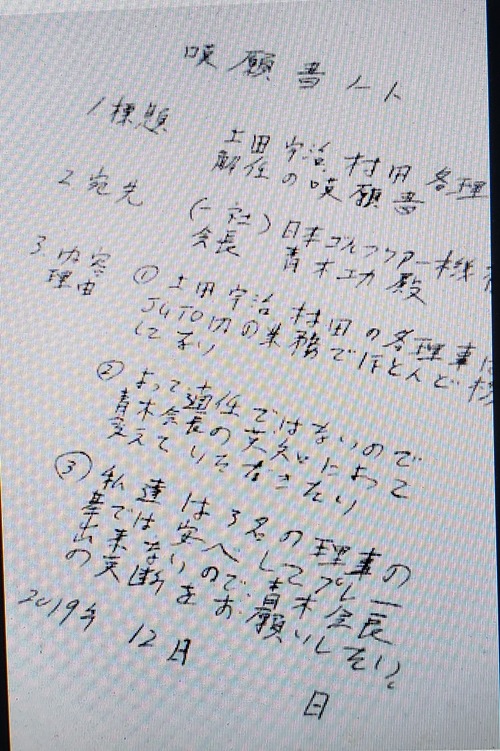 嘆願書ノート
1 標題
土田 宇治 村田 各理
解任の嘆願書
2 宛先
(一社) 日本ゴルフツアー機
会長 青木功 殿
3. 内容
理由
① 土田 宇治 村田の各理事は
JGTO内の業務でほとんど
しており
② よって適任ではないので
青木会長の英知によって
変えていただきたい
③ 私達は3名の理事の
基では安心してプレー
出来ないので青木会長
の英断をお願いしたい。
2019年 12月
日